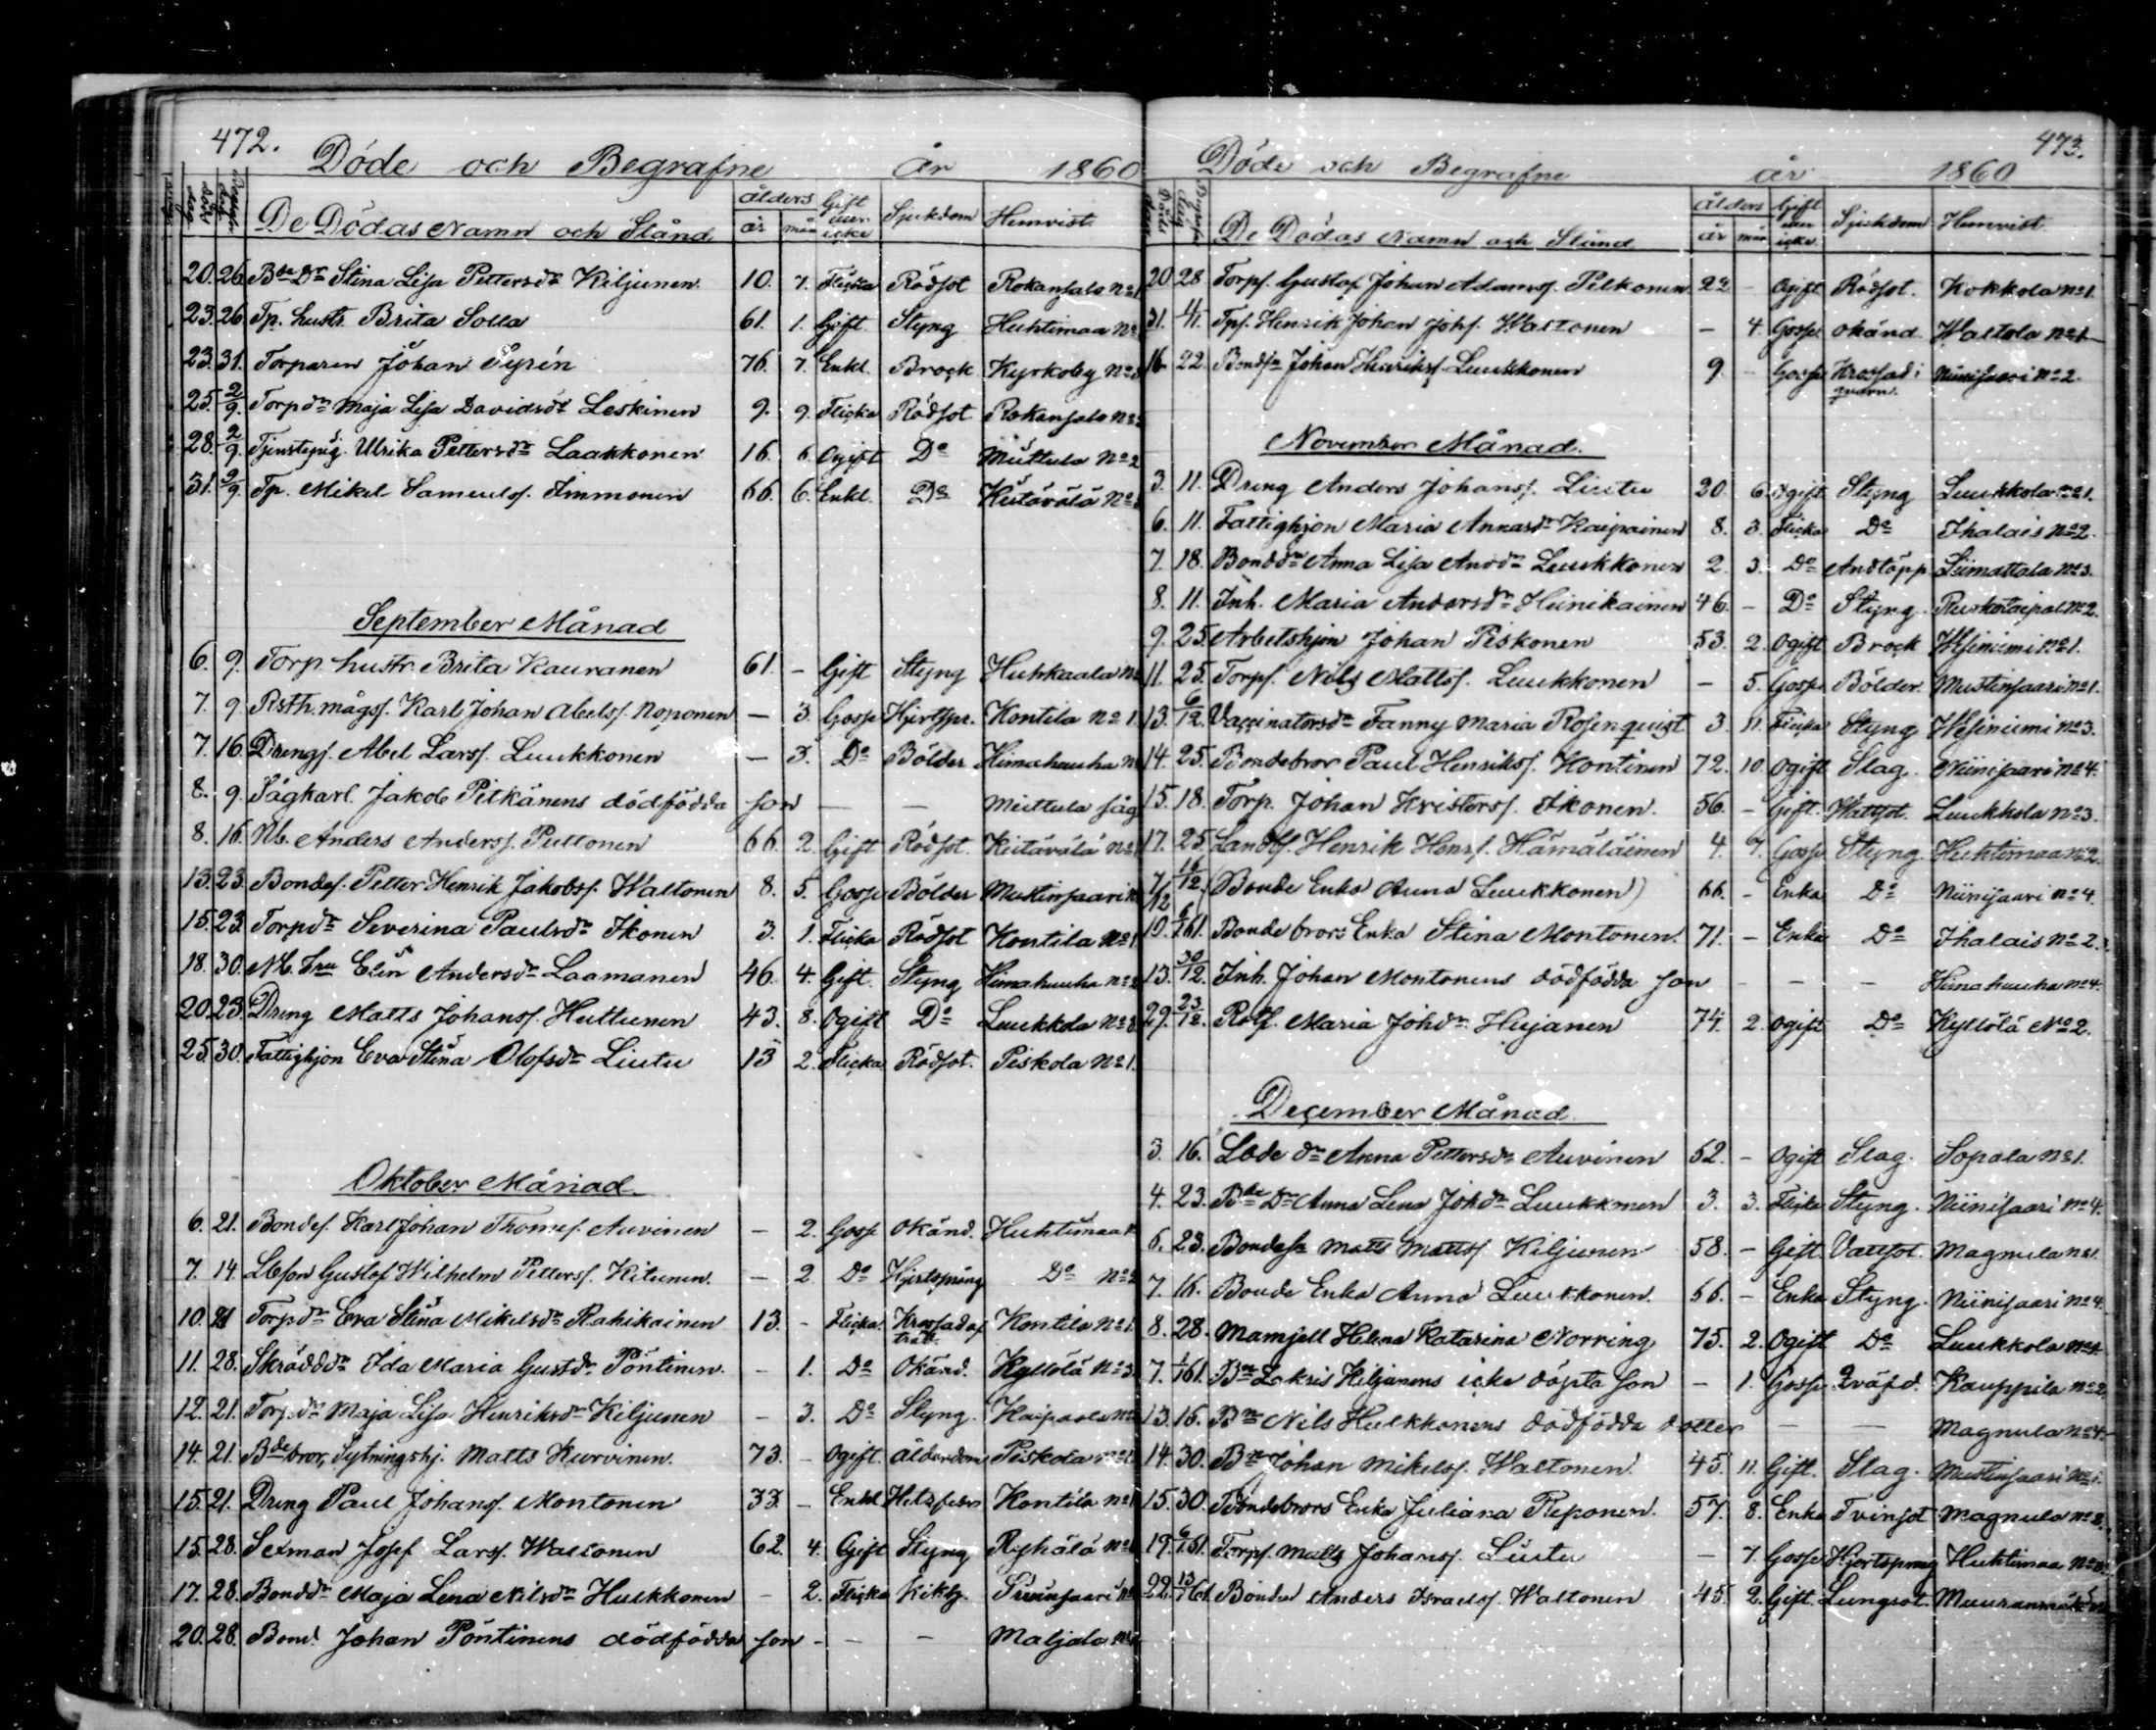 472.
Döde och Begrafne år 1860
De Dödas Namn och Stånd ålders år mån Gift eller icke Sjukdom Hemvist
20. 26. Bde Dr Stina Lisa Pettersdr Kiljunen 10. 7. Flicka Rödsot Rokansalo No 1
23. 26. Tp. hustr. Brita Solla 61. 1. Gift Styng Huhtimaa No
23. 31. Torparen Johan Syrén 76. 7. Enkl. Brock Kyrkoby No
25. 2/9. Torpdr Maja Lisa Davidsdr Leskinen 9. 9. Flicka Rödsot Rokansalo No
28. 2/9. Tjensteqvig. Ulrika Pettersdr Laakkonen 16. 6. Ogift Do Miettula No 2
31. 2/9. Tp. Mikel Samuels. Immonen 66. 6. Enkl. Do Kietävälä No
September Månad
6. 9. Torp. hustr. Brita Kauranen 61. - Gift Styng Huhkaala No
7. 9. Rsth. mågs. Karl Johan Abels. Noponen - 3. Gosse Hjertspr. Kontila No 1.
7. 16. Drengs. Abel Lars. Luukkonen - 3. Do Bölder Himahauha No
8. 9. Sågkarl. Jakob Pitkänens dödfödda son - - Miettula såg
8. 16. Nb. Anders Anders. Puttonen 66. 2. Gift Rödsot. Kietävälä No
13. 23. Bondes. Petter Henrik Jakobs. Waltonen 8. 5. Gosse Bölder Mustinsaari No
15. 23. Torpdr Severina Paulsdr Ikonen 3. 1. Flicka Rödsot Kontila No 1.
18. 30. Nb. Fru Elin Andersdr Laamanen 46. 4. Gift. Styng Himahauha No 2
20. 23. Dreng Matts Johans. Huttunen 43. 8. Ogift Do Luukkola No 3.
25. 30. Fattighjon Eva Stina Olofsdr Liutu 13 2. Flicka Rödsot. Piskola No 1.
Oktober Månad
6. 21. Bondes. Karl Johan Thomes. Auvinen - 2. Gosse Okänd. Huhtimaa No
7. 14. Lbson Gustof Wilhelm Petters. Kilunen. - 2 Do Hjertspring Do No 2
10. 21 Torpdr Eva Stina Mikelsdr Rahikainen 13. - Flicka. Krossad af träd. Kontila No 1.
11. 28. Skräddr Ida Maria Gustdr Pöntinen. - 1. Do Okänd. Kyllölä No 3.
12. 21. Torpdr Maja Lisa Henriksdr Kiljunen - 3. Do Styng. Kaipaala No
14. 21. Bde bror, Sytningshj. Matts Kurvinen. 73. - Ogift. ålderdom Piskola No 1.
15. 21. Dreng Paul Johans. Montonen 33. - Enkl Hetsfeber Kontila No 1
15. 28. Sexman Josef Lars. Waltonen 62. 4. Gift Styng Ryhälä No
17. 28. Bonddr Maja Lena Nilsdr Hulkkonen - 2. Flicka Kikh. Niinisaari No
20. 28. Bond. Johan Pöntinens dödfödda son - - - Maljala No
473.
Döde och Begrafne år 1860
De Dödas Namn och Stånd ålders år mån Gift eller icke Sjukdom Hemvist.
20. 28 Torps. Gustaf Johan Adams. Pelkonen 22 - Ogift Rödsot. Kokkola No 1.
31. 4/11. Tps. Henrik Johan Johs. Waltonen - 4. Gosse Okänd. Waltola No 1
16. 22. Bondsn Johan Henriks. Luukkonen 9. - Gosse Krossad i qvarn. Niinisaari No 2.
November Månad.
3. 11. Dreng Anders Johans. Liutu 20. 6. Ogift Styng Luukkola No 1.
6. 11. Fattighjon Maria Annasdr Kaipainen 8. 3. Flicka Do Ihalais No 2.
7. 18. Bonddr Anna Lisa Andsdr Luukkonen 2. 3. Do Andtäpp Liimattala No 3.
8. 11. Inh. Maria Andersdr Heinikainen 46. - Do Styng. Ruokotaipal No 2.
9. 25. Arbetshjon Johan Piskonen 53. 2. Ogift Brock Wesiniemi No 1.
11. 25. Torps. Nils Matts. Luukkonen - 5. Gosse Bölder. Mustinsaari No 1.
13. 6/12. Vaccinatorsdr Fanny Maria Rosenquist 3. 11. Flicka Styng Wesiniemi No 3.
14. 25. Bondebror Paul Henriks. Kontinen 72. 10. Ogift Slag. Niinisaari No 4.
15. 18. Torp. Johan Kristers. Ikonen. 56. - Gift. Wattsot. Luukkola No 3.
17. 25. Landbs. Henrik Henrs. Hämäläinen 4. 9. Gosse Styng. Huhtimaa No 2.
7/12 16/12 (Bonde Enka Anna Luukkonen) 66. - Enka Do Niinisaari No 4.
19. 6/1 61. Bonde brors Enka Stina Montonen. 71. - Enka Do Ihalais No 2.
13. 30/12. Inh. Johan Montonens dödfödda son - - - Himahauha No 4.
29. 23/12. Rotf. Maria Johdr Hujanen 74. 2. Ogift Do Kyllölä No 2.
December Månad
3. 16. Lbde dr Anna Pettersdr Auvinen 52. - Ogift Slag. Sopala No 1.
4. 23. Bde Dr Anna Lena Johdr Luukkonen 3. 3. Flicka Styng. Niinisaari No 4.
6. 23. Bondesn Matts Matts. Kiljunen 58. - Gift Vattsot. Magnula No 1.
7. 16. Bonde Enka Anna Luukkonen. 66. - Enka Styng. Niinisaari No 4.
8. 28. Mamsell Helena Katarina Norring 75. 2. Ogift Do Luukkola No 4.
7. 1/1 61. Bn Zakris Kiljunens icke döpta son - 1. Gosse Qväfd. Kauppila No 2
13. 16. Bn Nils Hulkkonens dödfödda dotter - - Magnula No 4.
14. 30. Bn Johan Mikels. Waltonen. 45. 11. Gift. Slag. Mustinsaari No 1.
15. 30. Bondebrors Enka Juliana Reponen. 57. 8. Enka Tvinsot Magnula No 2.
19. 6/1 61. Torps. Matts Johans. Liutu - 7. Gosse Hjertspring Huhtimaa No
22. 13/1 61. Bonden Anders Israels. Waltonen 45. 2. Gift. Lungsot. Muuranmäki